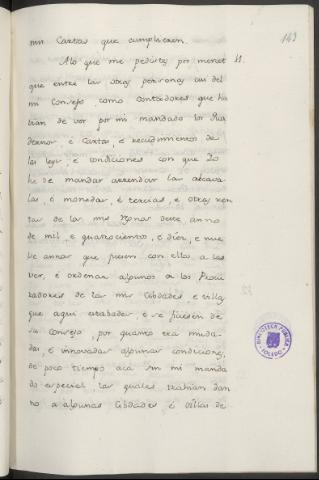 mis Cartas que cumplieren.
149
A lo que me pedistes por merced 11.
que entre las otras personas asi del
mi Consejo, como Contadores que ha
bian de ver por mi mandado los Qua
dernos, é Cartas, é recudimientos de
las leyes, é condiciones con que Yo
he de mandar arrendar las alcava
las, é monedas, é tercias, é otras ren
tas de los mis Regnos deste anno
de mil, é quatrocientos, é diez, é nue
ve annos que fuesen con ellos a las
ver, é ordenar algunos de los Procu
radores de las mis Cibdades é villas
que aqui estabades, é se ficiesen de
su Consejo, por quanto era muda
das, é innovadas algunas condiciones,
de poco tiempo acá sin mi manda
do especial, las quales trahian dan
no a algunas Cibdades é villas de
BIBLIOTECA PUBLICA
TOLEDO